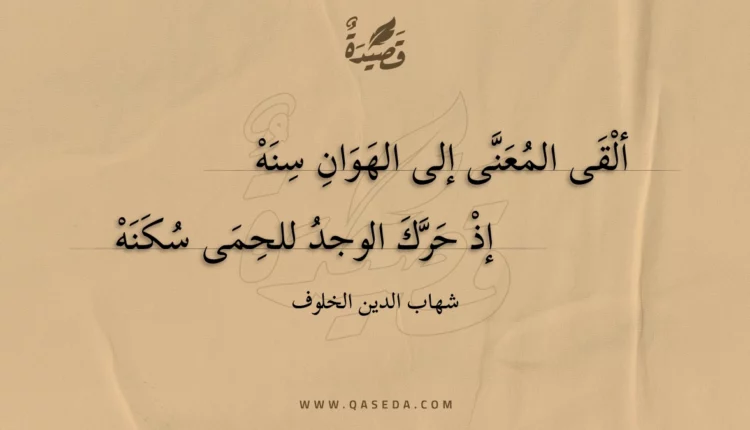 قَصِيدَةٌ
ألْقَى المُعَنَّى إلى الهَوَانِ سِنَهْ
إذْ حَرَّكَ الوجدُ للحِمَى سُكَنَهْ
شهاب الدين الخلوف
WWW.QASEDA.COM